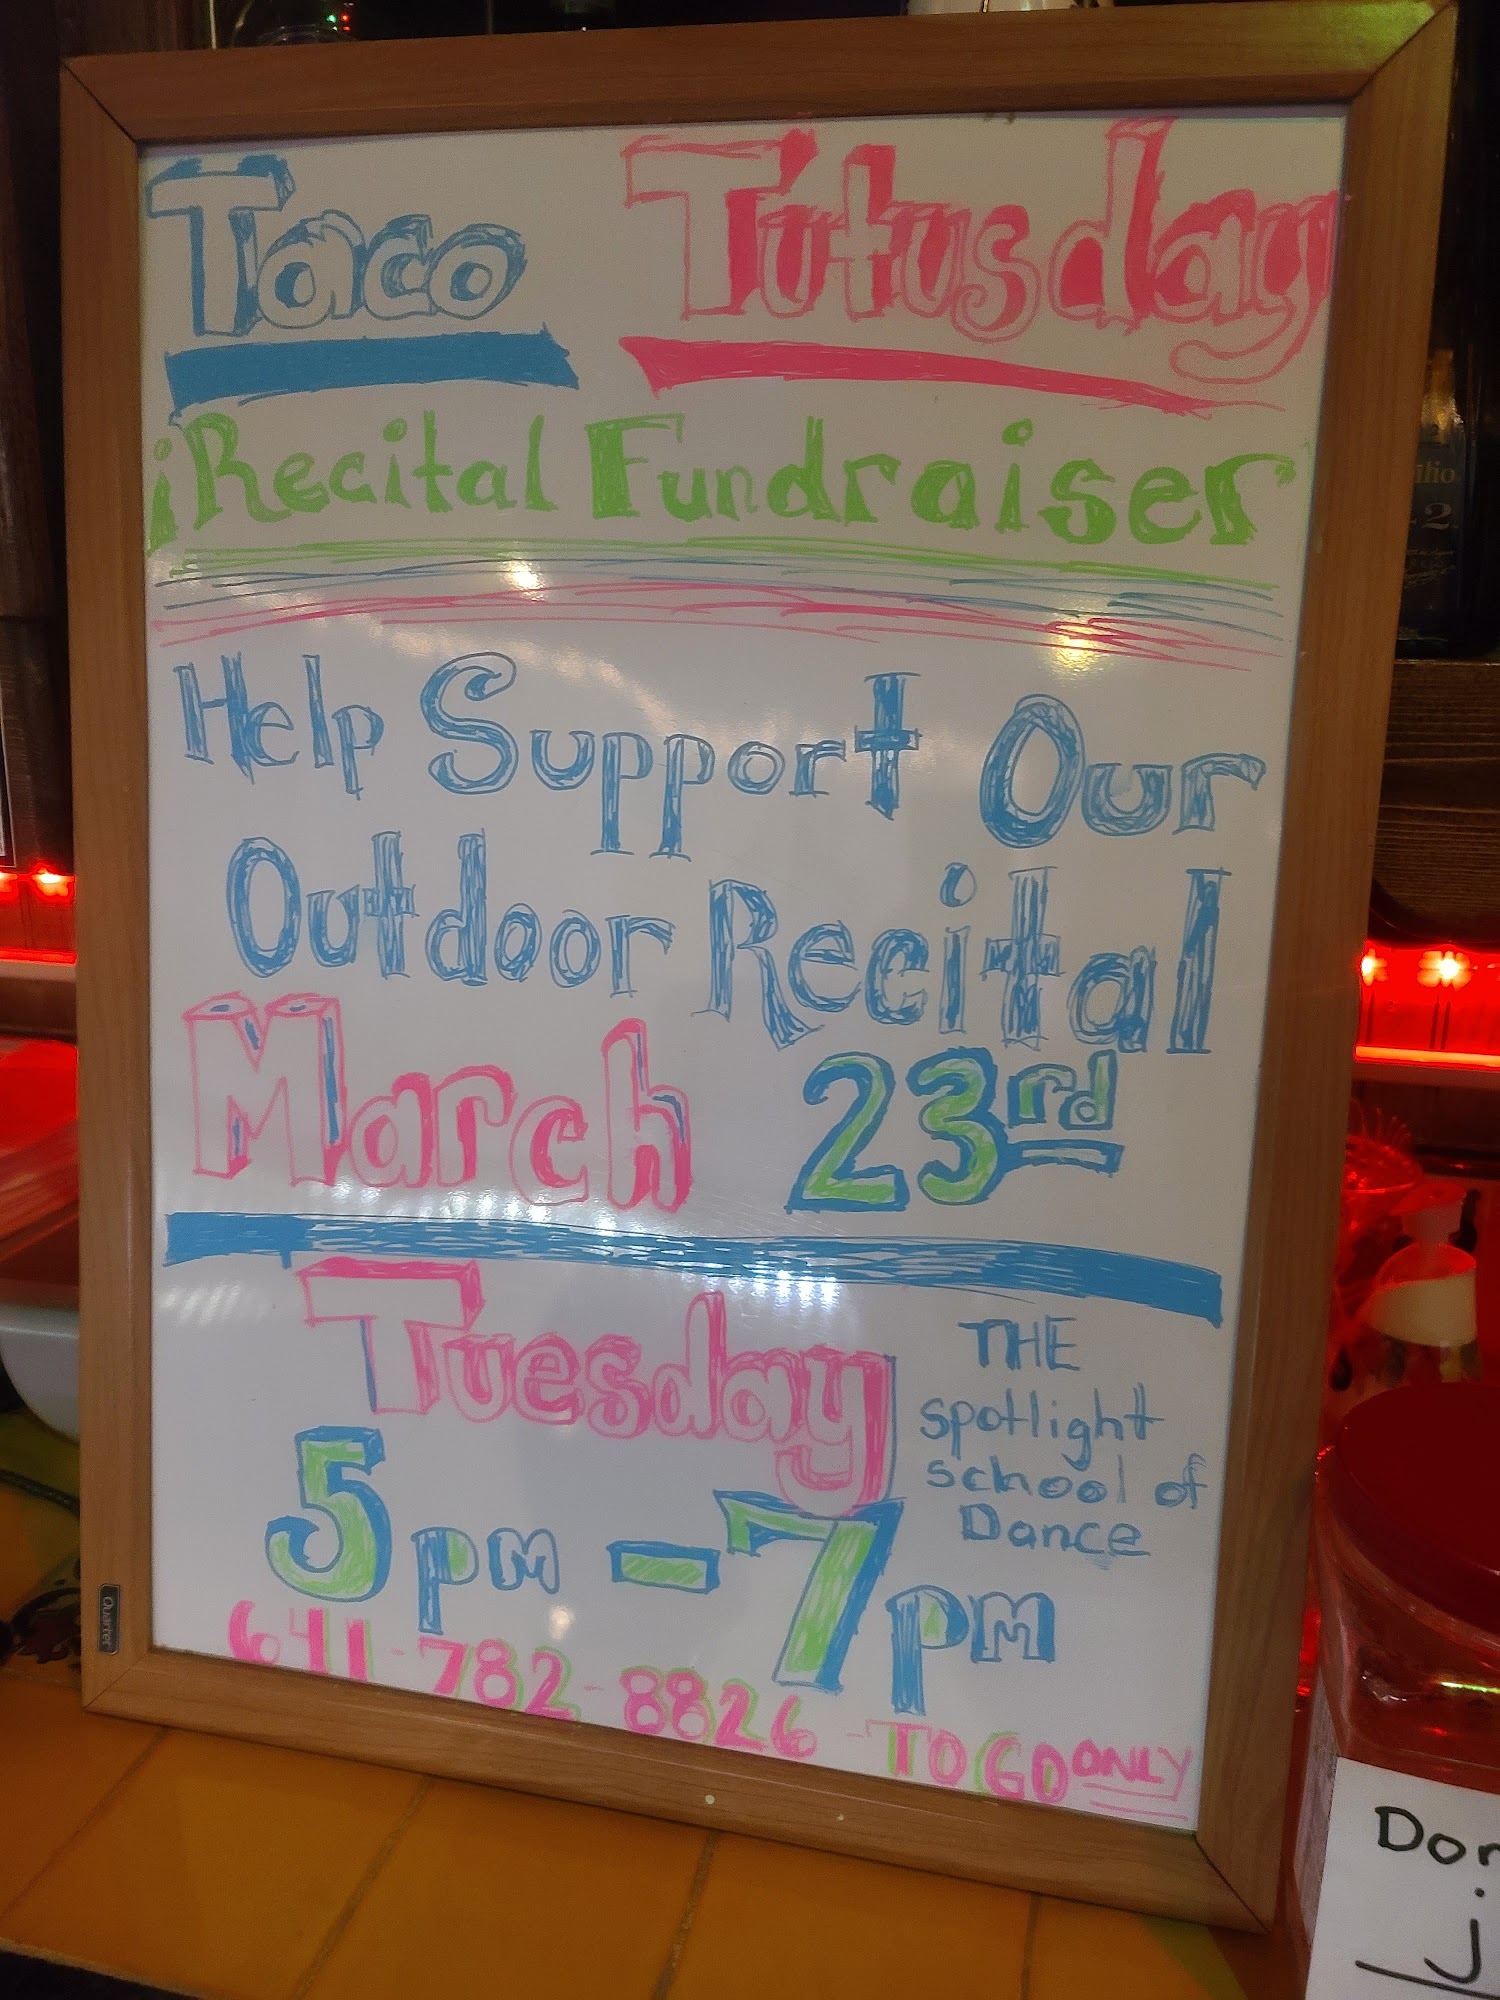 Taco Tutusday
¡Recital Fundraiser
Help Support Our
Outdoor Recital
March 23rd
Tuesday
5pm - 7pm
THE
spotlight
school of
Dance
641-782-8826 - TO GO ONLY
Quartet